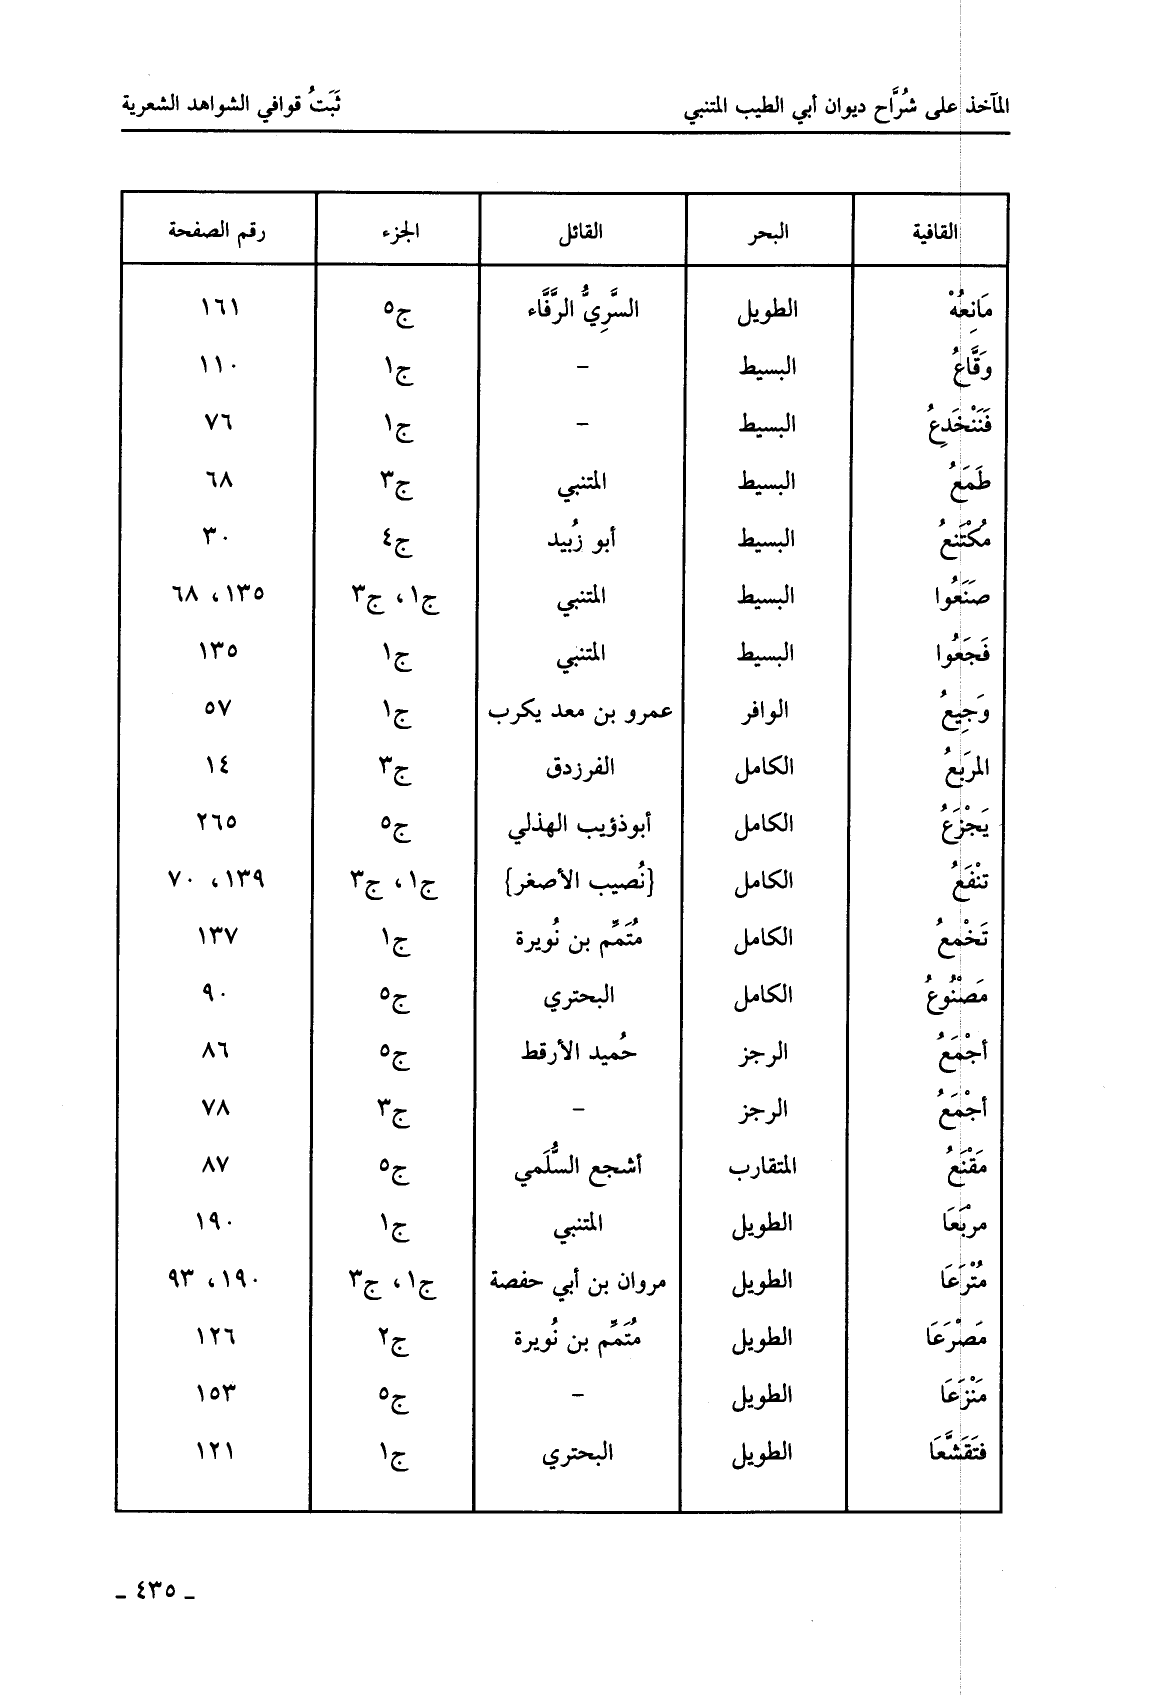 المآخذ على شُرَّاح ديوان أبي الطيب المتنبي ثَبَتُ قوافي الشواهد الشعرية
القافية البحر القائل الجزء رقم الصفحة
مَانِعُهْ الطويل السَّرِيُّ الرَّفَّاء ج٥ ١٦١
وَقَّاعُ البسيط – ج١ ١١٠
فَنَنْخَدِعُ البسيط – ج١ ٧٦
طَمَعُ البسيط المتنبي ج٣ ٦٨
مُكْتَنِعُ البسيط أبو زُبيد ج٤ ٣٠
صَنَعُوا البسيط المتنبي ج١، ج٣ ١٣٥، ٦٨
فَجَعُوا البسيط المتنبي ج١ ١٣٥
وَجِيعُ الوافر عمرو بن معد يكرب ج١ ٥٧
المربَعُ الكامل الفرزدق ج٣ ١٤
يَجْزَعُ الكامل أبوذؤيب الهذلي ج٥ ٢٦٥
تنْفَعُ الكامل {نُصيب الأصغر} ج١، ج٣ ١٣٩، ٧٠
تَخْمعُ الكامل مُتَمِّم بن نُويرة ج١ ١٣٧
مَصْنُوعُ الكامل البحتري ج٥ ٩٠
أجْمَعُ الرجز حُميد الأرقط ج٥ ٨٦
أجْمَعُ الرجز – ج٣ ٧٨
مَقْنَعُ المتقارب أشجع السُّلَمي ج٥ ٨٧
مرْبَعَا الطويل المتنبي ج١ ١٩٠
مُتْرَعَا الطويل مروان بن أبي حفصة ج١، ج٣ ١٩٠، ٩٣
مَصْرَعَا الطويل مُتَمِّم بن نُويرة ج٢ ١٢٦
مَنْزَعَا الطويل – ج٥ ١٥٣
فتَقَشَّعَا الطويل البحتري ج١ ١٢١
ـ ٤٣٥ ـ